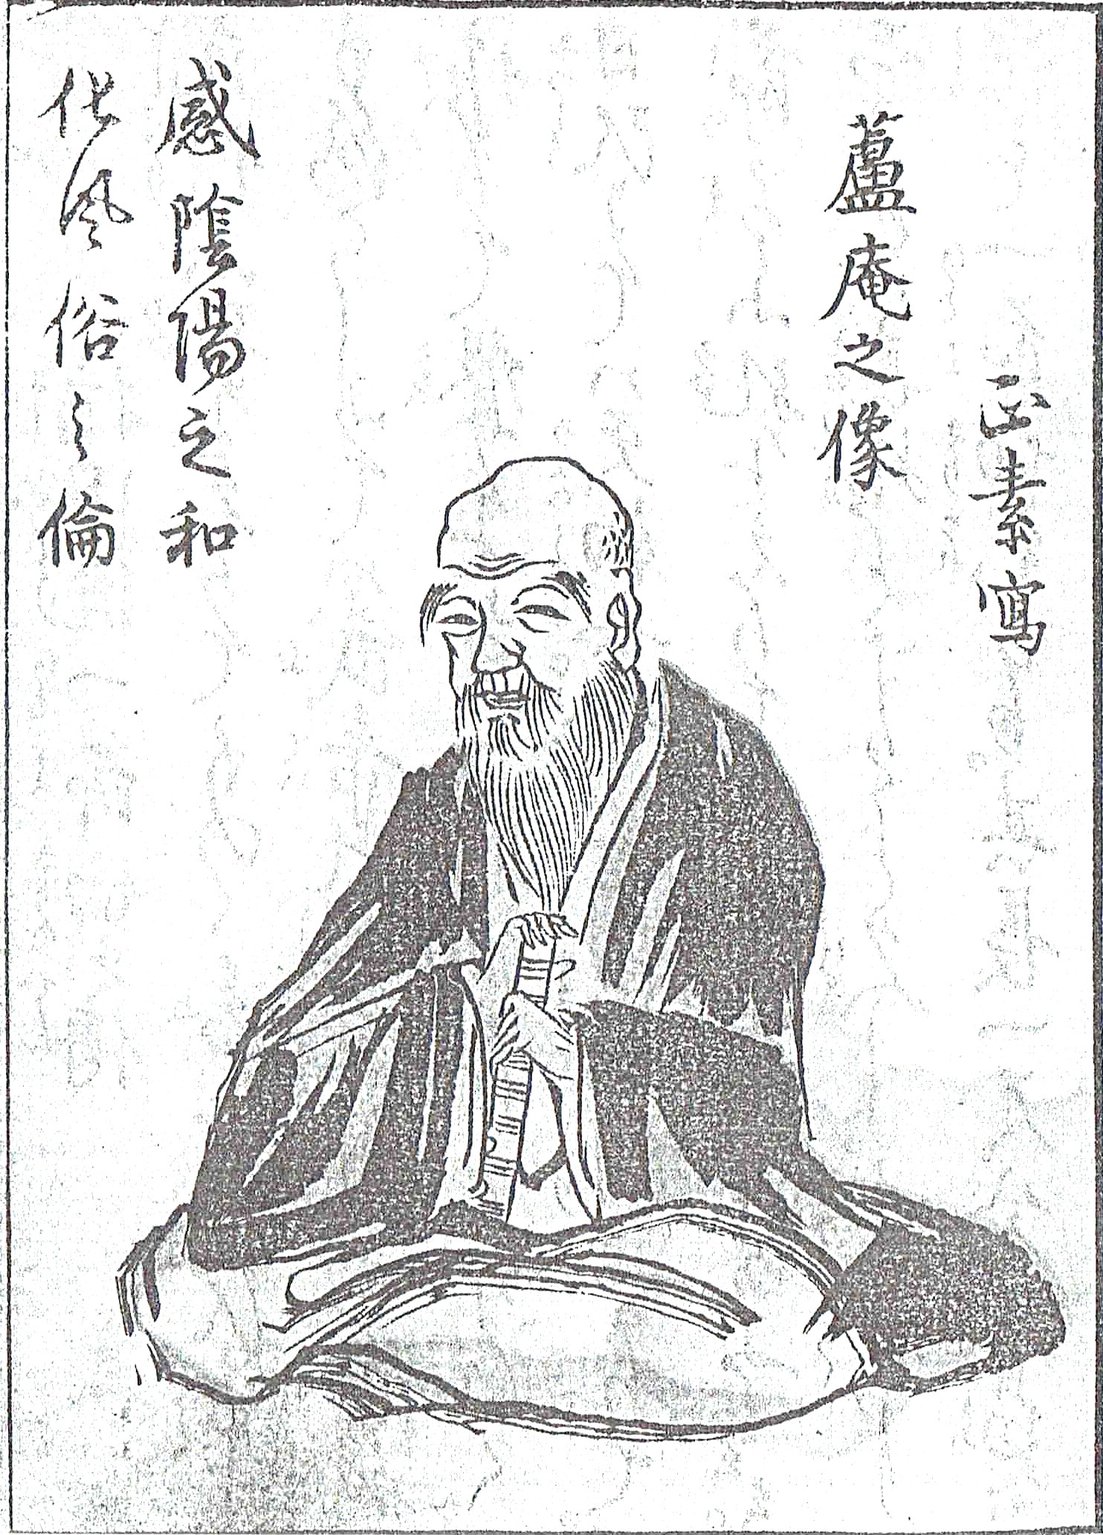 正素寫
蘆庵之像
感陰陽之和
化風俗之倫